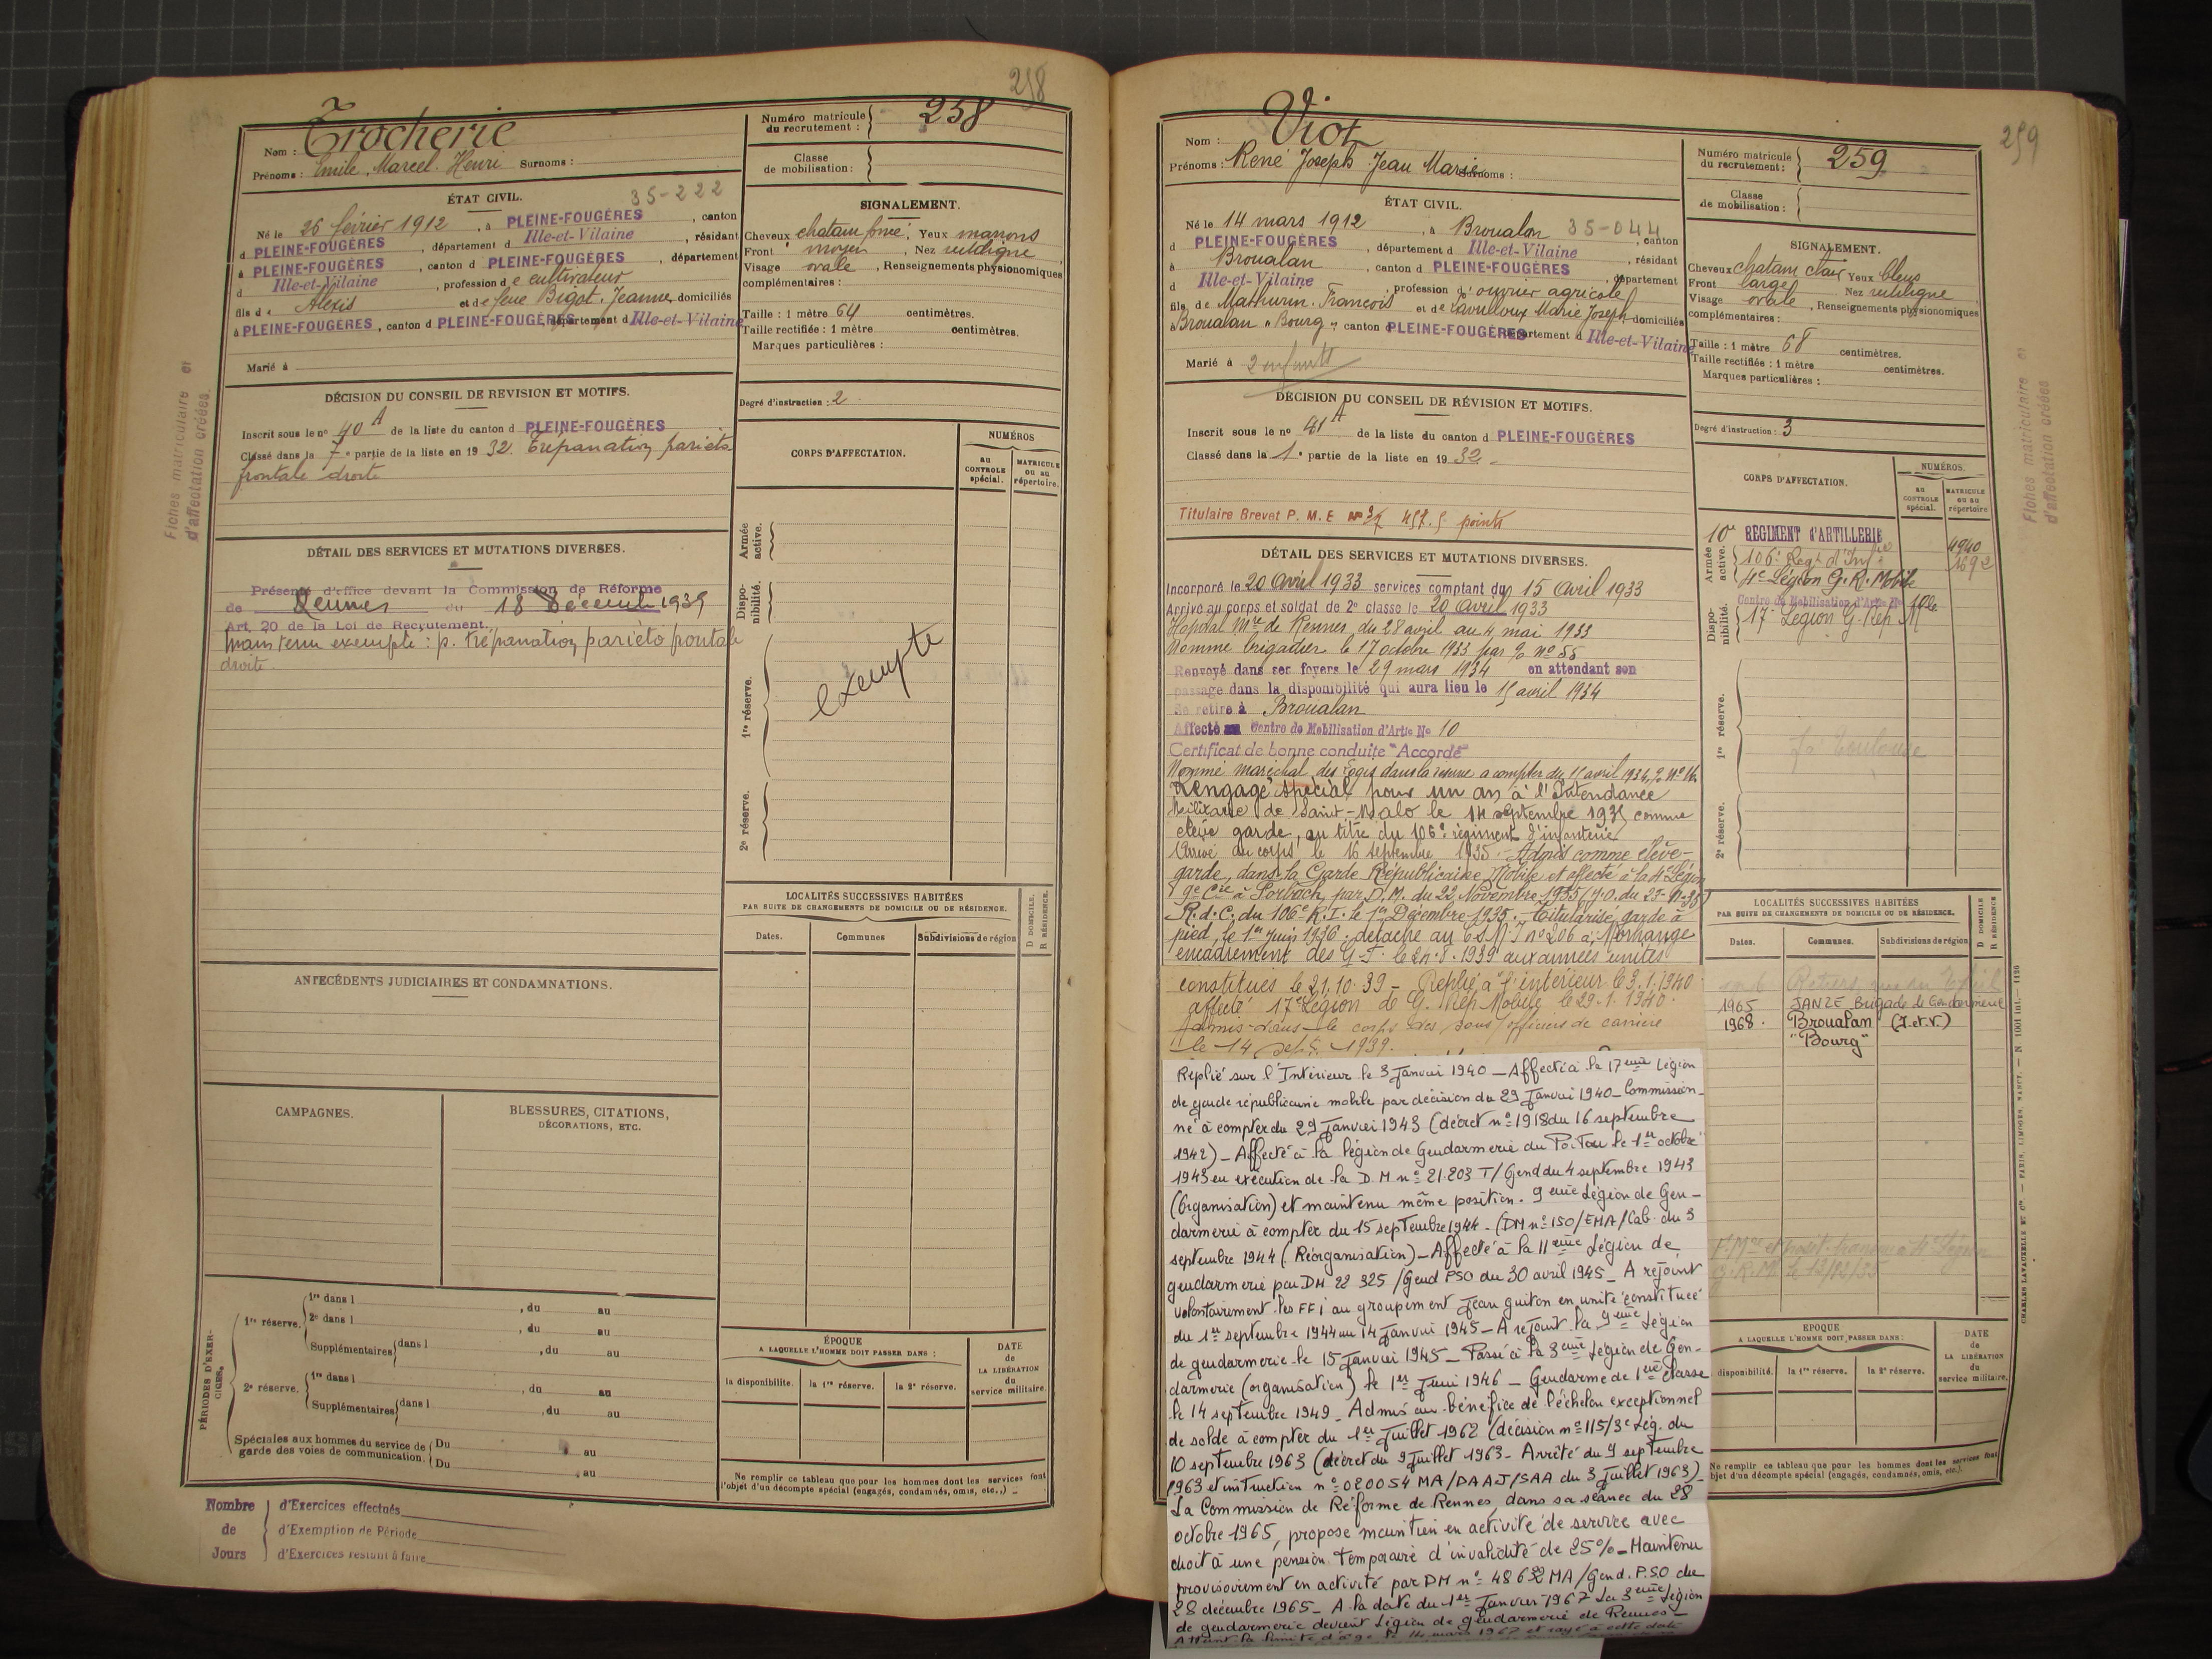 258
Trocherie
Nom :
Prénoms : Emile, Marcel. Henri Surnoms :
Numéro matricule du recrutement : 258
Classe de mobilisation :
ÉTAT CIVIL.
35-222
Né le 26 février 1912, à PLEINE-FOUGÈRES, canton
d PLEINE-FOUGÈRES, département d Ille-et-Vilaine, résidant
à PLEINE-FOUGÈRES, canton d PLEINE-FOUGÈRES, département
d Ille-et-Vilaine, profession de cultivateur
fils de Alexis et de feue Bigot. Jeanne, domiciliés
à PLEINE-FOUGÈRES, canton d PLEINE-FOUGÈRES, département d Ille-et-Vilaine
Marié à
SIGNALEMENT.
Cheveux chatain foncé, Yeux marrons
Front moyen, Nez rectiligne
Visage ovale, Renseignements physionomiques
complémentaires :
Taille : 1 mètre 64 centimètres.
Taille rectifiée : 1 mètre centimètres.
Marques particulières :
Degré d'instruction : 2
DÉCISION DU CONSEIL DE REVISION ET MOTIFS.
Inscrit sous le nº 40 A de la liste du canton d PLEINE-FOUGÈRES
Classé dans la 7e partie de la liste en 1932. Trépanation pariéto-
frontale droite
Fiches matriculaire et
d'affectation créées.
DÉTAIL DES SERVICES ET MUTATIONS DIVERSES.
Présenté d'office devant la Commission de Réforme
de Rennes du 18 Décemb 1939
Art. 20 de la Loi de Recrutement.
Maintenu exempté : p. trépanation pariéto frontale
droite
CORPS D'AFFECTATION.
NUMÉROS
AU CONTROLE spécial.
MATRICULE OU AU répertoire.
Armée active.
Disponibilité.
1re réserve.
exempté
2e réserve.
ANTÉCÉDENTS JUDICIAIRES ET CONDAMNATIONS.
LOCALITÉS SUCCESSIVES HABITÉES
PAR SUITE DE CHANGEMENTS DE DOMICILE OU DE RÉSIDENCE.
D DOMICILE.
R RÉSIDENCE.
Dates.
Communes
Subdivisions de région
CAMPAGNES.
BLESSURES, CITATIONS,
DÉCORATIONS, ETC.
PÉRIODES D'EXERCICES.
1re réserve. 1re dans l , du au
2e dans l , du au
Supplémentaires dans l , du au
2e réserve. 1re dans l , du au
Supplémentaires dans l , du au
Spéciales aux hommes du service de garde des voies de communication. Du au
Du au
ÉPOQUE
A LAQUELLE L'HOMME DOIT PASSER DANS :
la disponibilité.
la 1re réserve.
la 2e réserve.
DATE de LA LIBÉRATION du service militaire.
Ne remplir ce tableau que pour les hommes dont les services font
l'objet d'un décompte spécial (engagés, condamnés, omis, etc.,)
Nombre de Jours
d'Exercices effectués
d'Exemption de Période
d'Exercices restant à faire
259
Viot
Nom :
Prénoms : René Joseph Jean Marie Surnoms :
Numéro matricule du recrutement : 259
Classe de mobilisation :
ÉTAT CIVIL.
Né le 14 mars 1912, à Broualan 35-044, canton
d PLEINE-FOUGÈRES, département d Ille-et-Vilaine, résidant
à Broualan, canton d PLEINE-FOUGÈRES, département
d Ille-et-Vilaine, profession d'ouvrier agricole
fils de Mathurin. François et de Lavouloux Marie Joseph, domiciliés
à Broualan "Bourg", canton PLEINE-FOUGÈRES département d Ille-et-Vilaine
Marié à 2 enfants
SIGNALEMENT.
Cheveux chatain clair Yeux bleus
Front large Nez rectiligne
Visage ovale, Renseignements physionomiques
complémentaires :
Taille : 1 mètre 68 centimètres.
Taille rectifiée : 1 mètre centimètres.
Marques particulières :
Degré d'instruction : 3
DÉCISION DU CONSEIL DE RÉVISION ET MOTIFS.
Inscrit sous le nº 41 A de la liste du canton d PLEINE-FOUGÈRES
Classé dans la 1e partie de la liste en 1932
Titulaire Brevet P. M. E Nº 37 457.5 points
Fiches matriculaire et
d'affectation créées
DÉTAIL DES SERVICES ET MUTATIONS DIVERSES.
Incorporé le 20 avril 1933 services comptant du 15 avril 1933
Arrivé au corps et soldat de 2e classe le 20 avril 1933
Hopital Mre de Rennes du 28 avril au 4 mai 1933
Nommé brigadier le 17 octobre 1933 par % nº 55
Renvoyé dans ses foyers le 29 mars 1934 en attendant son
passage dans la disponibilité qui aura lieu le 15 avril 1934
Se retire à Broualan
Affecté au Centre de Mobilisation d'Artie No 10
Certificat de bonne conduite "Accordé"
Nommé maréchal des logis dans la réserve a compter du 15 avril 1934, % nº 16
Rengagé spécial pour un an à l'Intendance
Militaire de Saint-Malo le 14 septembre 1935 comme
élève garde, au titre du 106e régiment d'infanterie
Arrivé au corps le 16 septembre 1935. Admis comme élève-
garde, dans la Garde Républicaine Mobile et affecté à la 4e Légion
8e Cie à Forbach, par D.M. du 22 Novembre 1935 (J.O. du 23-11-35)
R.d.C. du 106e R.I. le 1er Décembre 1935. Titularisé garde à
pied, le 1er Juin 1936. détaché au C.S.M.I nº 206 à Morhange
encadrement des G.F. le 24.8.1939 aux armées unités
constitués le 21.10.39 - Replié à l'intérieur le 3.1.1940
affecté 17e Légion de G. Rép Mobile le 29.1.1940.
Admis dans le corps des sous officiers de carrière
le 14 sept. 1939.
Replié sur l'Intérieur le 3 Janvier 1940 _ Affecté à la 17ème Légion
de garde républicaine mobile par décision du 29 Janvier 1940 _ Commission-
né à compter du 29 Janvier 1943 (décret nº 1918 du 16 septembre
1942) _ Affecté à la légion de Gendarmerie du Poitou le 1er octobre
1943 en exécution de la D M nº 21.203 T/Gend du 4 septembre 1943
(Organisation) et maintenu même position. 9ème Légion de Gen-
darmerie à compter du 15 septembre 1944 _ (DM nº 150/EMA/Cab. du 3
septembre 1944 (Réorganisation) _ Affecté à la 11ème Légion de
gendarmerie par DM 22 325 /Gend PSO du 30 avril 1945 _ A rejoint
volontairement les FFI au groupement Jean guiton en unité constituée
du 1er septembre 1944 au 14 Janvier 1945 _ A rejoint la 9ème Légion
de gendarmerie le 15 Janvier 1945 _ Passé à la 3ème Légion de Gen-
darmerie (organisation) le 1er Juin 1946 _ Gendarme de 1ère classe
le 14 septembre 1949 _ Admis au bénéfice de l'échelon exceptionnel
de solde à compter du 1er Juillet 1962 (décision nº 115/3e Lég. du
10 septembre 1963 (décret du 9 Juillet 1963 - Arrêté du 9 septembre
1963 et instruction nº 020054 MA/DAAJ/SAA du 3 Juillet 1963) _
La Commission de Réforme de Rennes, dans sa séance du 28
octobre 1965, propose maintien en activité de service avec
droit à une pension temporaire d'invalidité de 25% _ Maintenu
provisoirement en activité par DM nº 48 632 MA/Gend. P.S.O du
28 décembre 1965 _ A la date du 1er Janvier 1967 la 3ème Légion
de gendarmerie devient Légion de gendarmerie de Rennes _
Atteint la limite d'âge le 14 mars 1967 et rayé à cette date
CORPS D'AFFECTATION.
NUMÉROS.
AU CONTROLE spécial.
MATRICULE OU AU répertoire
Armée active.
10e RÉGIMENT d'ARTILLERIE 4940
106e Regt d'Infie 1692
4e Légion G.R. Mobile
Disponibilité.
Centre de Mobilisation d'Artie No 10
17e Légion G. Rép M
1re réserve.
Toulouse
2e réserve.
LOCALITÉS SUCCESSIVES HABITÉES
PAR SUITE DE CHANGEMENTS DE DOMICILE OU DE RÉSIDENCE.
D DOMICILE
R RÉSIDENCE
Dates.
Communes.
Subdivisions de région
Retiers, rue du
1965 JANZE Brigade de Gendarmerie
1968. Broualan (I.et.V.)
"Bourg"
4e Légion
G.R.M. le 12/12/35
ÉPOQUE
A LAQUELLE L'HOMME DOIT PASSER DANS :
disponibilité.
la 1re réserve.
la 2e réserve.
DATE de LA LIBÉRATION du service militaire.
Ne remplir ce tableau que pour les hommes dont les services font
objet d'un décompte spécial (engagés, condamnés, omis, etc.).
CHARLES LAVAUZELLE ET Cie. — PARIS, LIMOGES, NANCY. — N 1001 int. — 1126